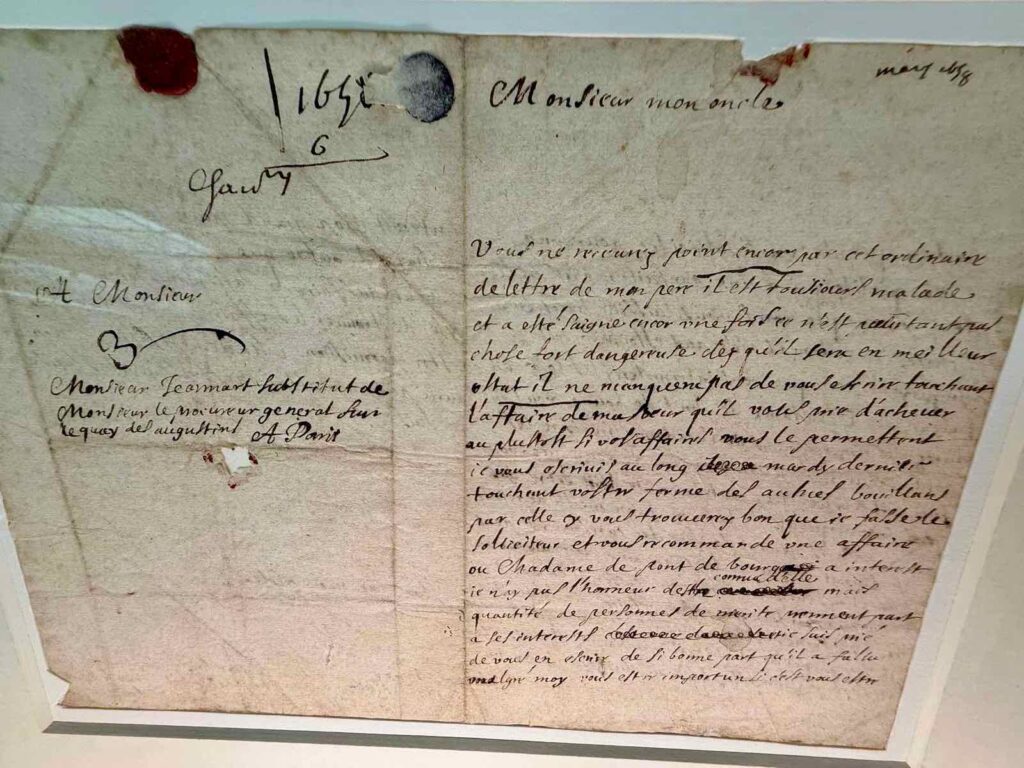 1656
6
A Monsieur
3
Monsieur Jeannart substitut de
Monsieur le procureur general sur
le quay des augustins A Paris
mars 1658
Monsieur mon oncle
Vous ne recevrez point encor par cet ordinaire
de lettre de mon pere il est tousiours malade
et a esté saigné encor une fois ce n'est pourtant pas
chose fort dangereuse des qu'il sera en meilleur
estat il ne manquera pas de vous escrire touchant
l'affaire de ma sœur qu'il vous prie d'achever
au plustost si vos affaires vous le permettent
ie vous escrivis au long mardy dernier
touchant vostre ferme des aulnes bouillans
par celle cy vous trouverez bon que ie fasse le
solliciteur et vous recommande une affaire
ou Madame de pont de bourg a interest
ie n'ay pas l'honneur d'estre connu d'elle mais
quantité de personnes de merite prennent part
a ses interests ie suis prié
de vous en escrire de si bonne part qu'il a fallu
malgré moy vous estre importun si c'est vous estre